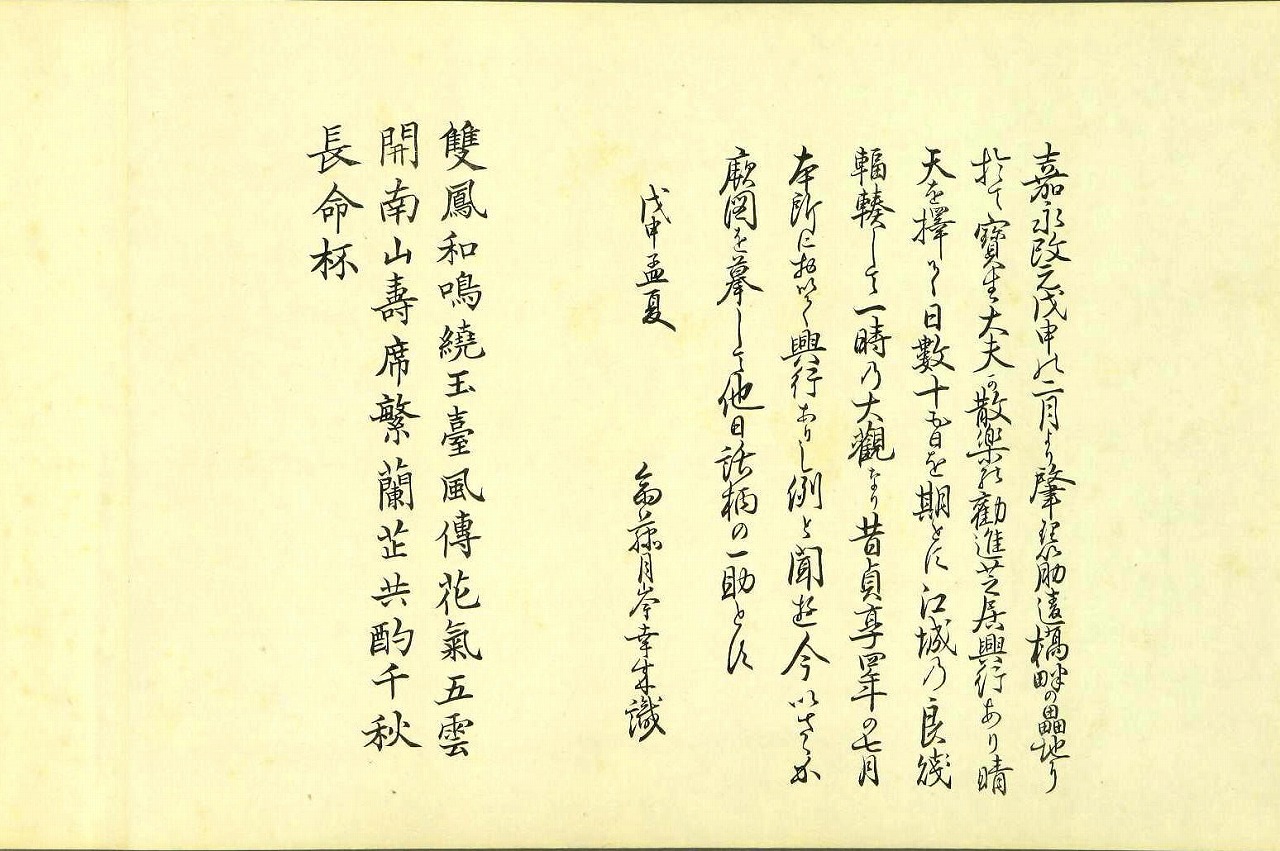 嘉永改元戊申の二月より肇めて筋違橋畔の畾地に
於て寳生大夫が散楽の勧進芝居興行あり晴
天を擇みて日數十五日を期とす江城の良賤
輻輳して一時の大觀なり昔貞享四年の七月
本所におゐて興行ありし例と聞り今いさゝか
厥図を摹して他日話柄の一助とす
戊申孟夏
翁藤月岑幸成識
雙鳳和鳴繞玉臺風傳花氣五雲
開南山壽席繁蘭芷共酌千秋
長命杯